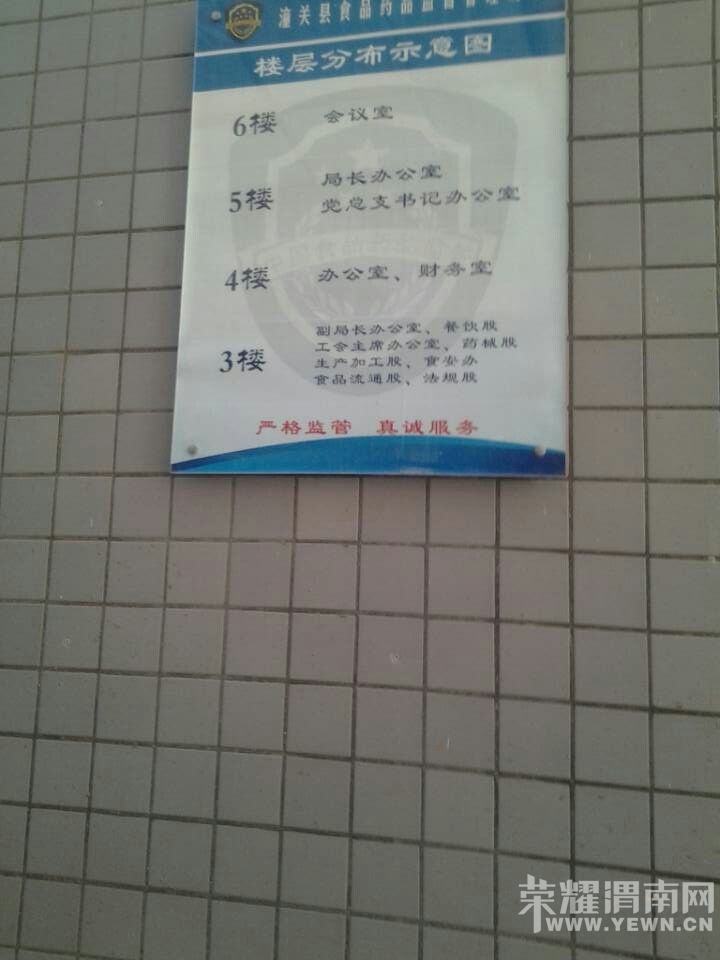 潼关县食品药品监督管理
楼层分布示意图
6楼 会议室
5楼 局长办公室
党总支书记办公室
4楼 办公室、财务室
3楼 副局长办公室、餐饮股
工会主席办公室、药械股
生产加工股、食安办
食品流通股、法规股
严格监管 真诚服务
荣耀渭南网
WWW.YEWN.CN